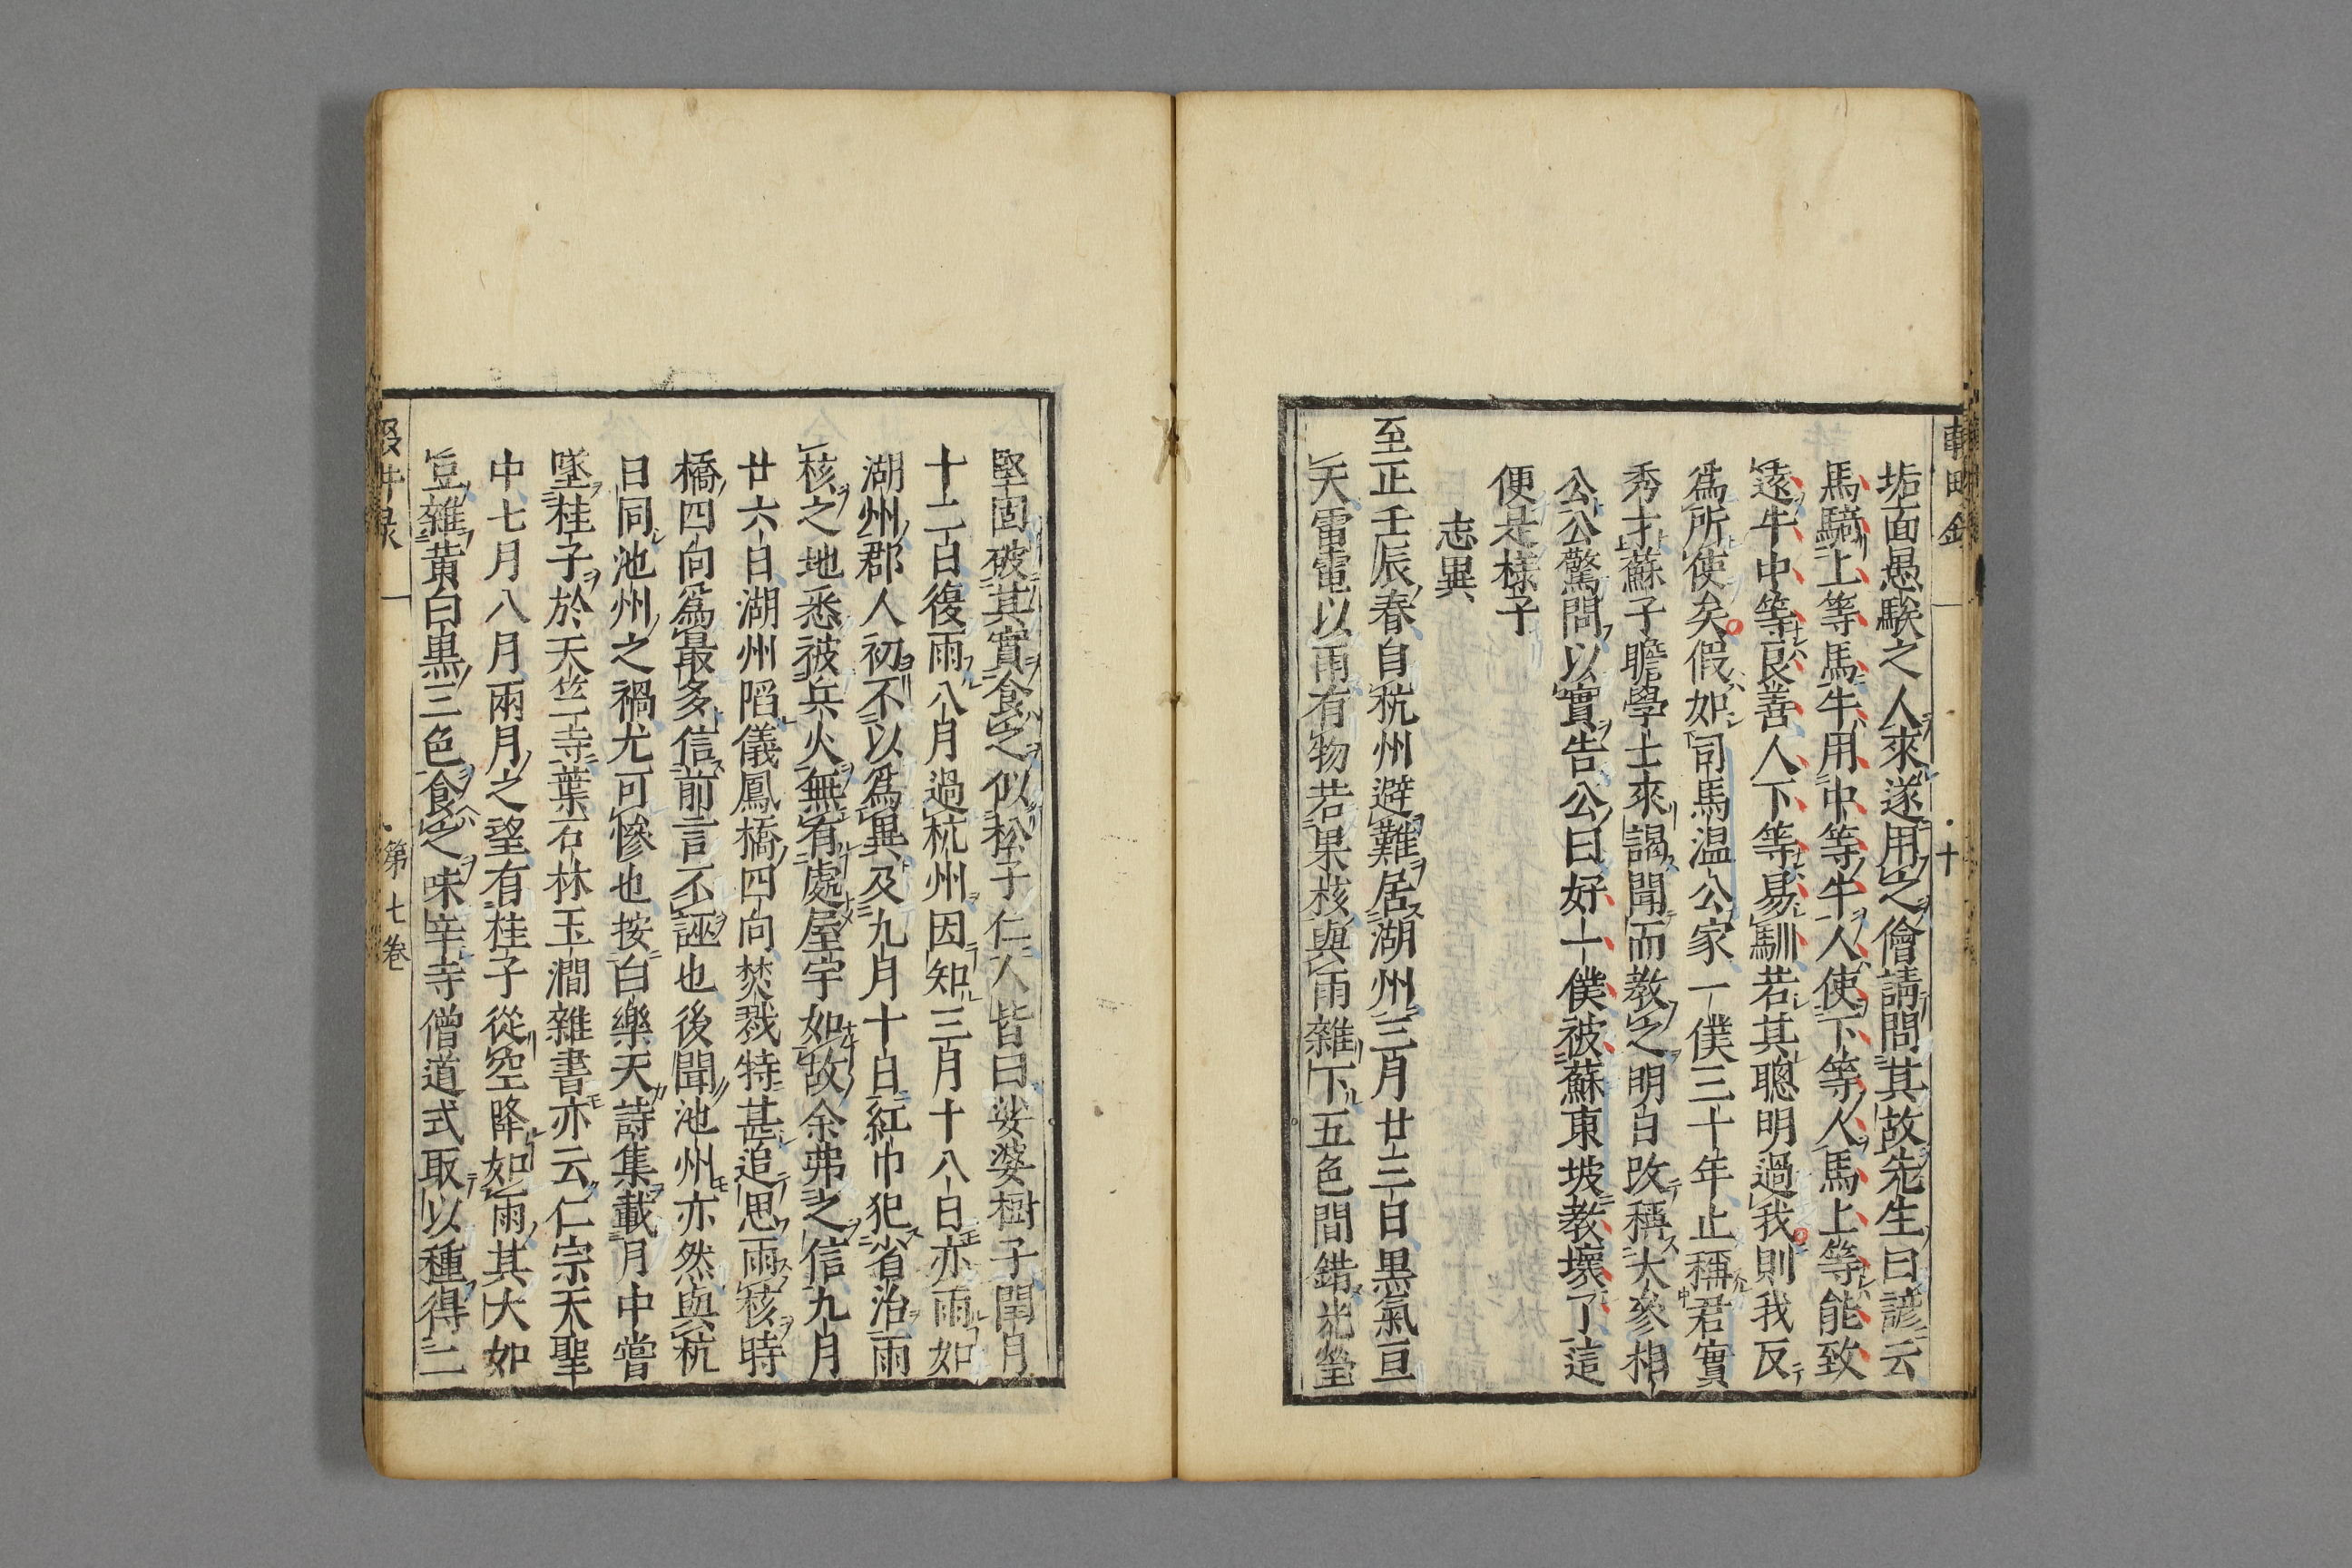 垢面愚騃之人來遂用之儈請問其故先生曰諺云
馬騎上等馬牛用中等牛人使下等人馬上等能致
遠牛中等良善人下等易馴若其聰明過我則我反
爲所使矣假如司馬温公家一僕三十年止稱君實
秀才蘇子瞻學士來謁聞而教之明日改稱大參相
公公驚問以實告公曰好一僕被蘇東坡教壞了這
便是樣子
志異
至正壬辰春自杭州避難居湖州三月廿三日黒氣亘
天雷電以雨有物若果核與雨雜下五色間錯光瑩
堅固破其實食之似松子仁人皆曰娑婆樹子閏月
十二日復雨八月過杭州因知三月十八日亦雨如
湖州郡人初不以爲異及九月十日紅巾犯省治雨
核之地悉被兵火無有處屋宇如故余弗之信九月
廿六日湖州陷儀鳳橋四向焚戮特甚追思雨核時
橋四向爲最多信前言不誣也後聞池州亦然與杭
日同池州之禍尤可慘也按白樂天詩集載月中嘗
墜桂子於天竺寺葉石林玉澗雜書亦云仁宗天聖
中七月八月兩月之望有桂子從空降如雨其大如
豆雜黄白黒三色食之味辛寺僧道式取以種得二
第七卷